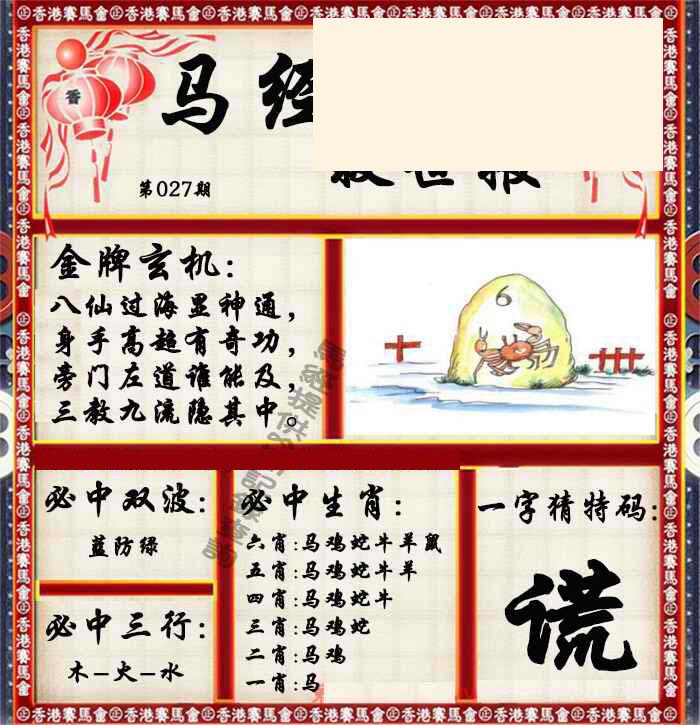 香港賽馬會
马经
救世报
第027期
金牌玄机:
八仙过海显神通，
身手高超有奇功，
旁门左道谁能及，
三教九流隐其中。
6
必中双波:
蓝防绿
必中三行:
木–火–水
必中生肖:
六肖:马鸡蛇牛羊鼠
五肖:马鸡蛇牛羊
四肖:马鸡蛇牛
三肖:马鸡蛇
二肖:马鸡
一肖:马
一字猜特码:
谎